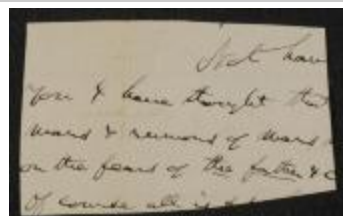 not have
you & have thought that
wars & rumours of wars
on the fears of the father &
of course all is